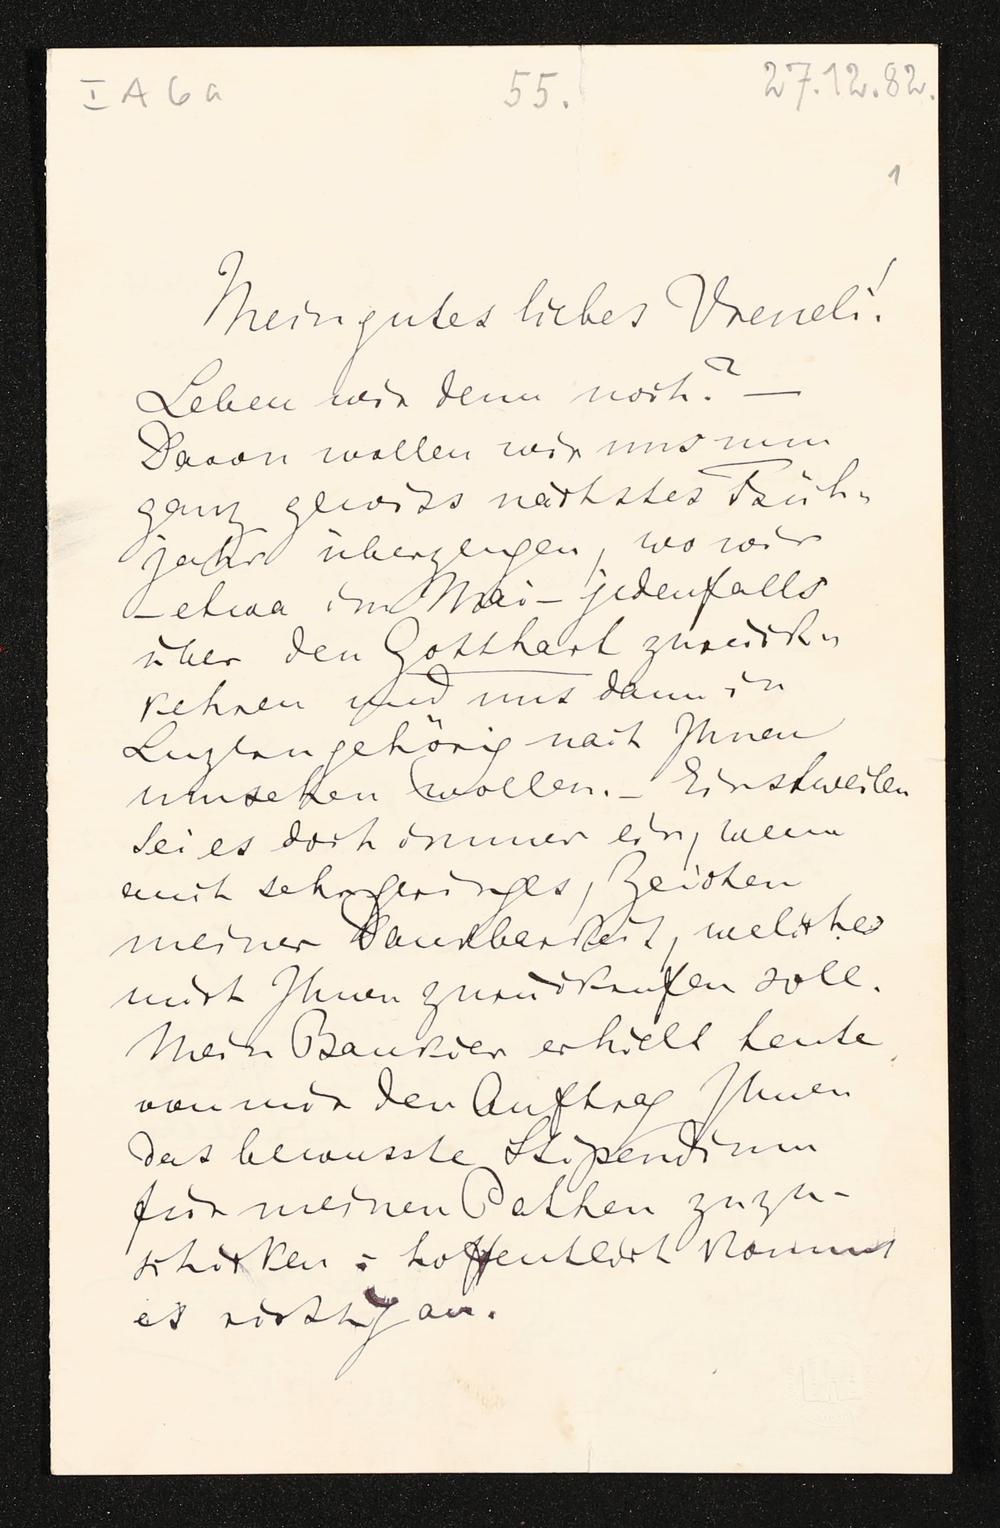 I A 6 a 55. 27.12.82.
1
Mein gutes liebes Vreneli!
Leben wir denn noch? —
Davon wollen wir uns nun
ganz gewiss nächstes Früh-
jahr überzeugen, wo wir
– etwa im Mai – jedenfalls
über den Gotthart zurück-
kehren und uns dann in
Luzern gehörig nach Ihnen
umsehen wollen. – Einstweilen
sei es doch immer ein, wenn
auch sehr geringes, Zeichen
meiner Dankbarkeit, welches
mich Ihnen zurückrufen soll.
Mein Bankier erhielt heute
von mir den Auftrag Ihnen
das bewusste Stipendium
für meinen Pathen zuzu-
schicken: hoffentlich kommt
es richtig an.